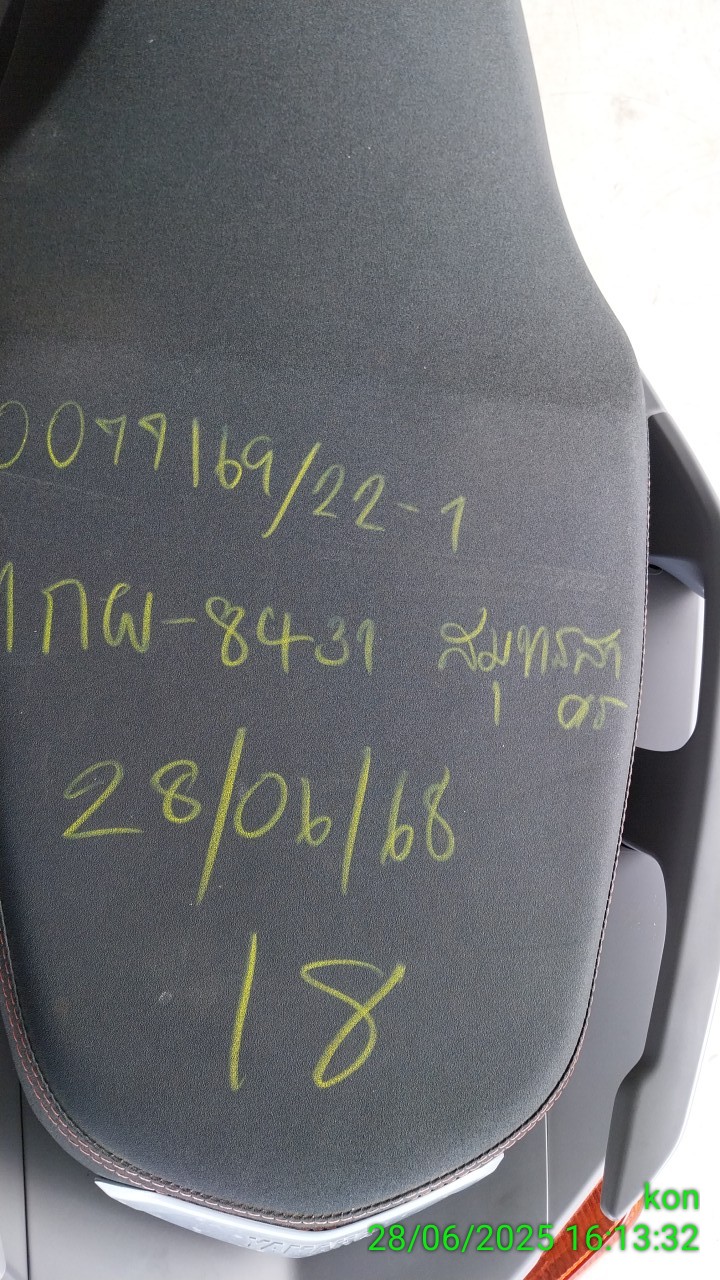 0077169/22-1
1กผ-8431 สมุทรสา
คร
28/06/68
18
kon
28/06/2025 16:13:32